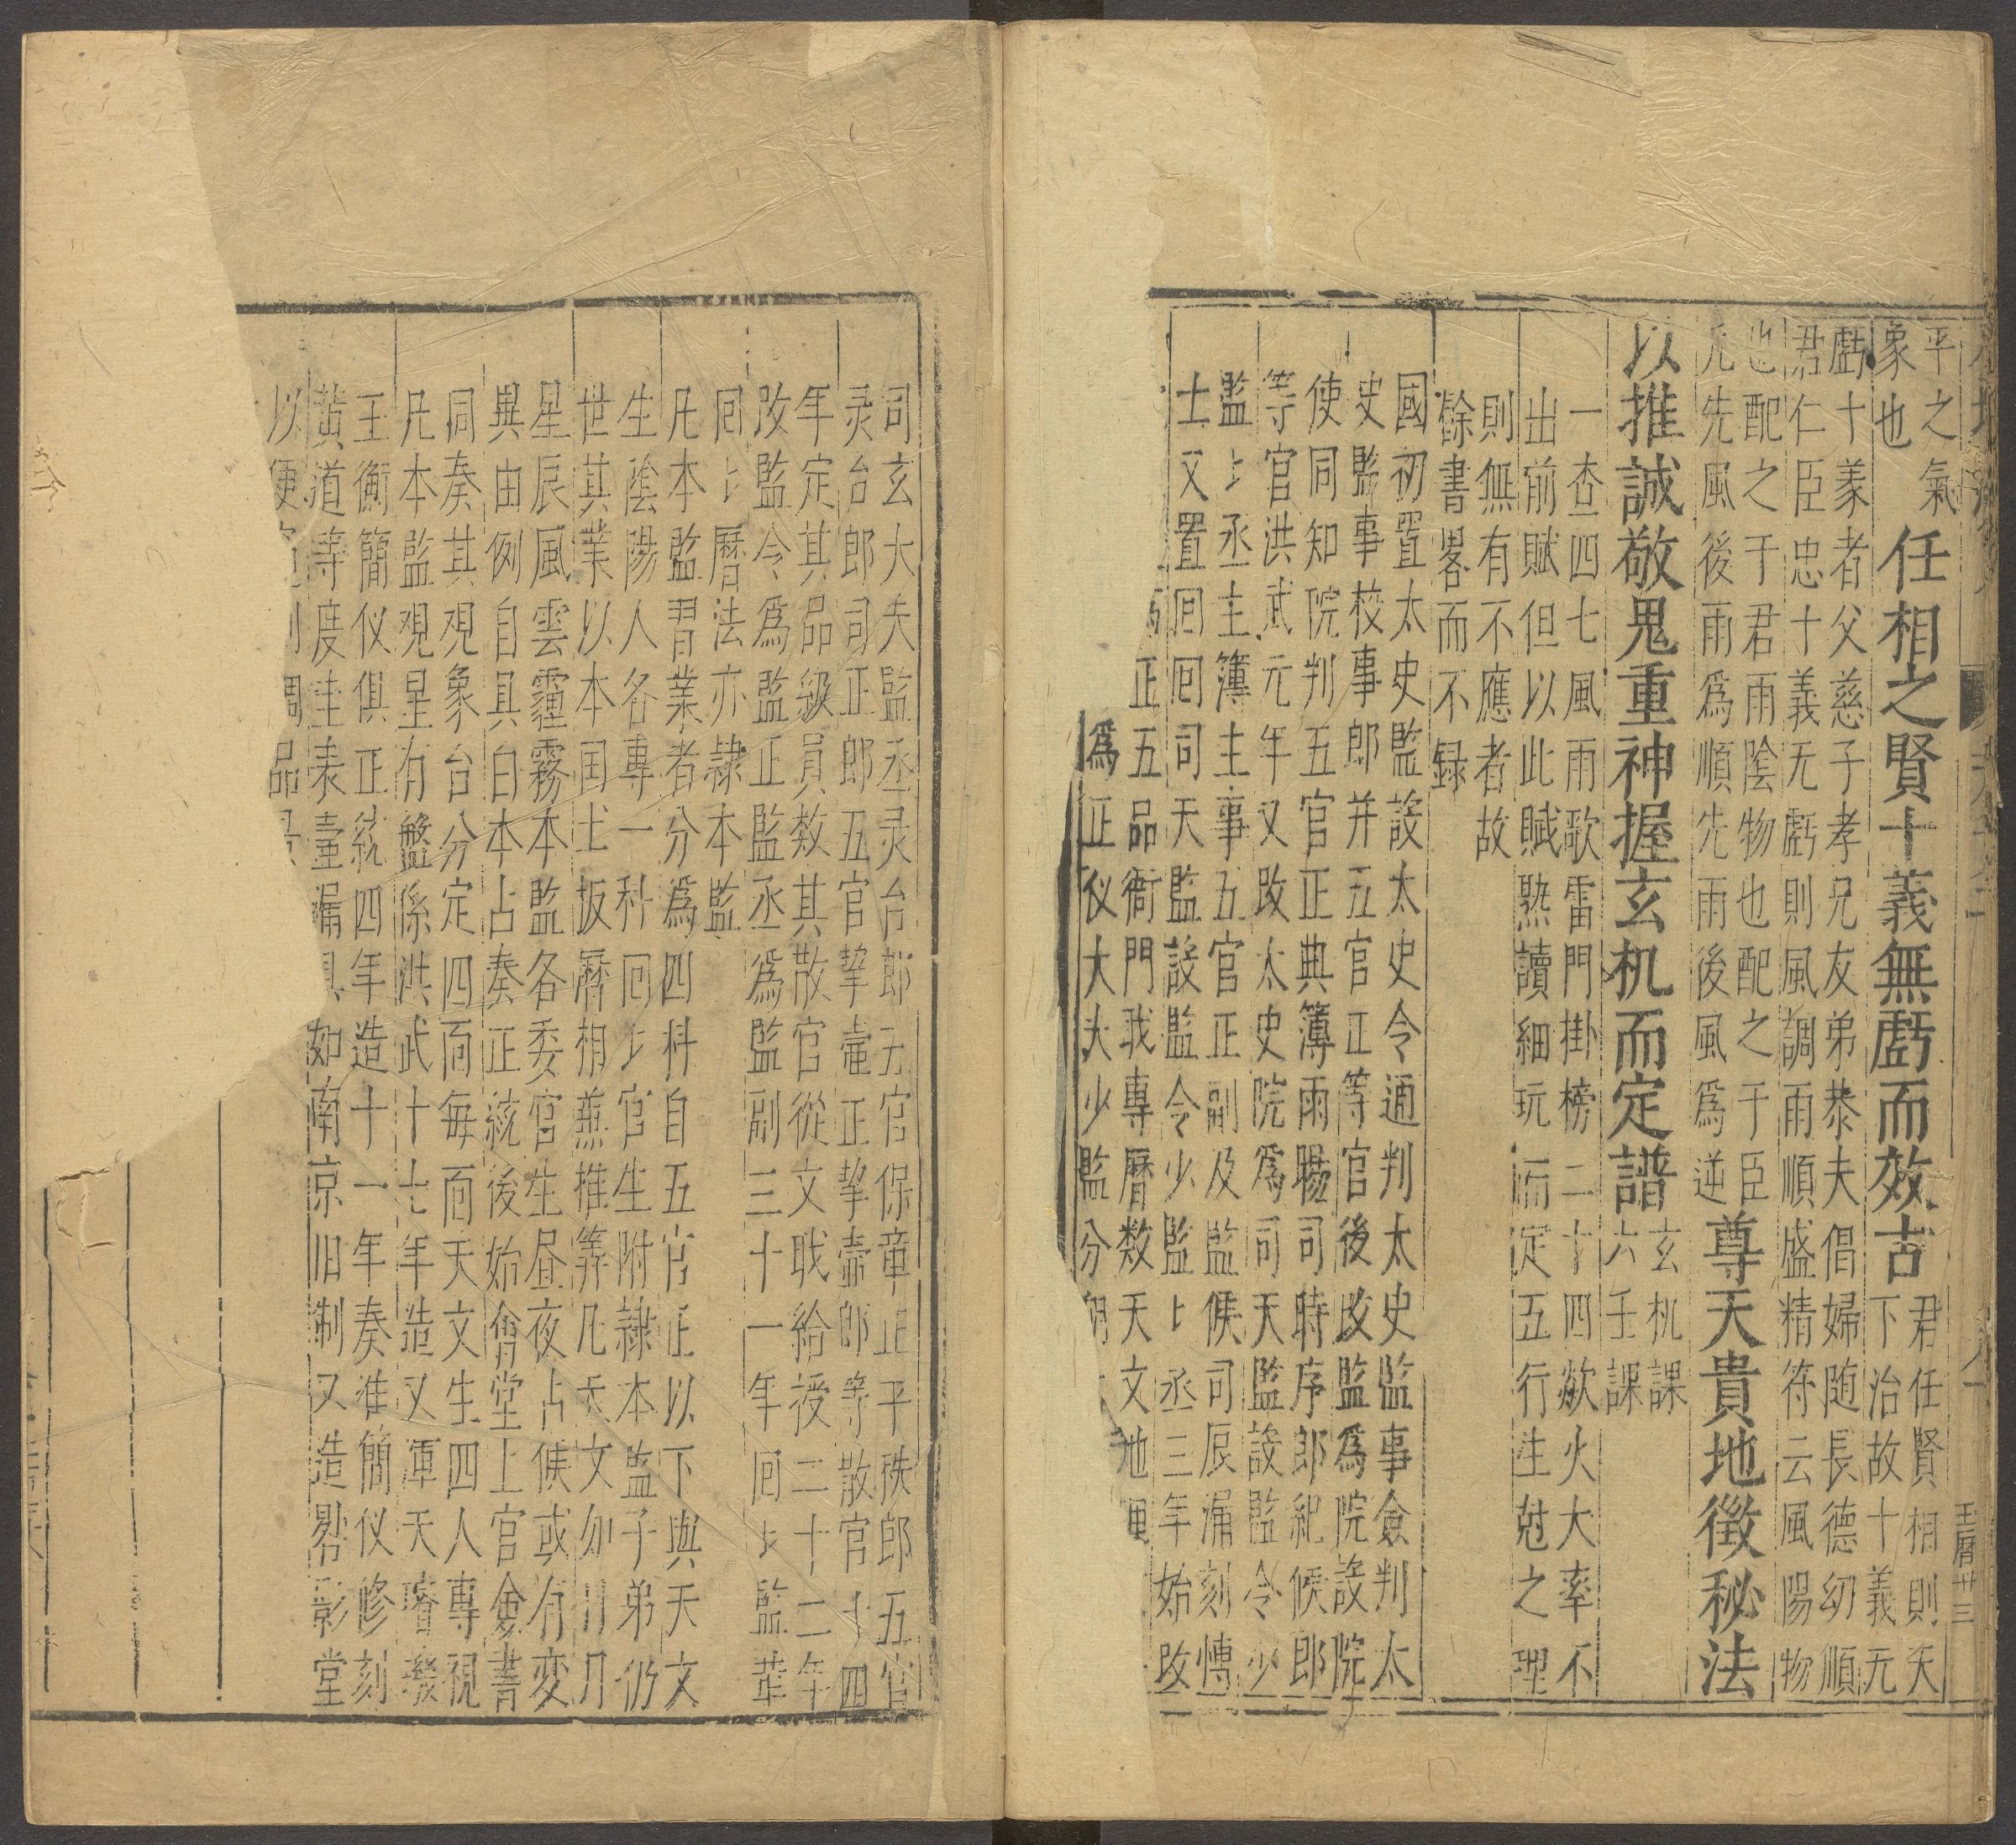 平之氣
象也
任相之賢十義無虧而效古
君任賢相則天
下治故十義无
虧十義者父慈子孝兄友弟恭夫倡婦随長德幼順
君仁臣忠十義无虧則風調雨順盛精符云風陽物
也配之于君雨陰物也配之于臣
凡先風後雨爲順先雨後風爲逆
尊天貴地徵秘法
以推誠敬鬼重神握玄机而定譜
玄机課
六壬課
一查四七風雨歌雷門掛榜二十四欸火大率不
出前賦但以此賦熟讀細玩而定五行生尅之理
則無有不應者故
餘書畧而不録
國初置太史監設太史令通判太史监事僉判太
史監事校事郎并五官正等官後改監爲院設院
使同知院判五官正典簿雨暘司時序郎紀候郎
等官洪武元年又改太史院爲司天監設監令少
監㆑丞主簿主事五官正副及監候司辰漏刻愽
士又置囘囘司天監設監令少監㆑丞三年始改
正五品衙門我專曆数天文地里
爲正仪大夫少監分朔
司玄大夫監丞灵台郎五官保章正平秩郎五官
灵台郎司正郎五官挈壷正挈壷郎等散官十四
年定其品級員数其散官從文戝給授二十二年
改監令爲監正監丞爲監副三十一年囘㆑監革
囘㆑曆法亦隷本監
凡本監習業者分爲四科自五官正以下與天文
生陰陽人各專一科囘㆑官生附隷本监子弟仍
世其業以本国土扳曆相兼推筭凡天文如日月
星辰風雲霾霧本監各委官生昼夜占候或有变
異由例自具白本占奏正統後始會堂上官僉書
同奏其观象台分定四面每面天文生四人專視
凡本監观星有盤係洪武十七年造又渾天璿璣
玉衡簡仪俱正統四年造十一年奏准簡仪修刻
黄道等度圭表壷漏具如南京旧制又造晷影堂
以便
調品
王曆卄三